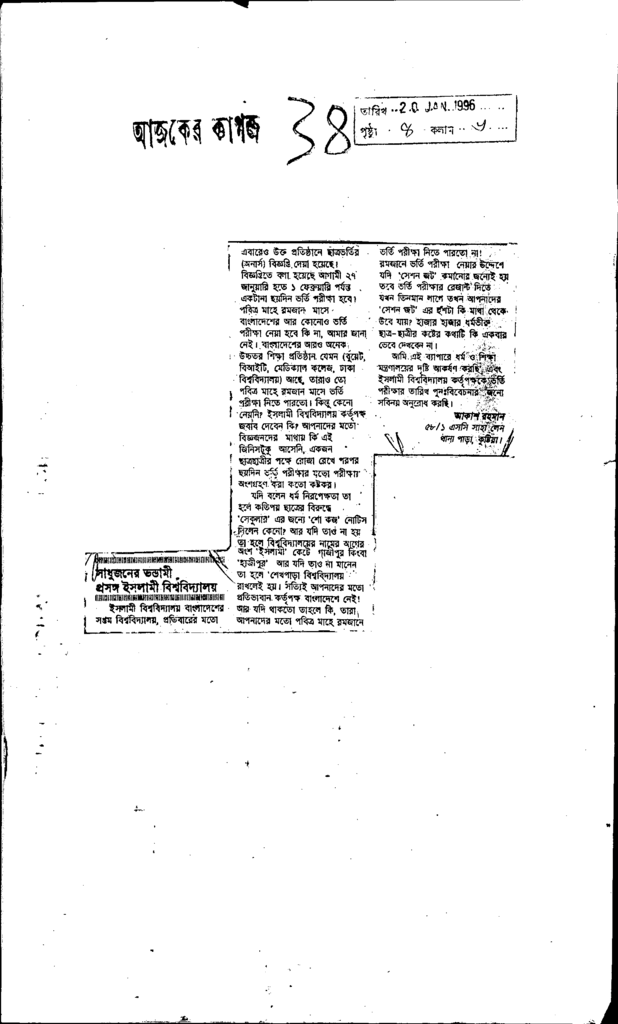 আজকের কাগজ
38
তারিখ ..20 JAN 1996 ......
পৃষ্ঠা . ৪ . কলাম .. ....
সাধুজনের ভন্ডামী
প্রসঙ্গ ইসলামী বিশ্ববিদ্যালয়
ইসলামী বিশ্ববিদ্যালয় বাংলাদেশের
সপ্তম বিশ্ববিদ্যালয়, প্রতিবারের মতো
এবারেও উক্ত প্রতিষ্ঠানে ছাত্রভর্তির
(অনার্স) বিজ্ঞপ্তি দেয়া হয়েছে।
বিজ্ঞপ্তিতে বলা হয়েছে আগামী ২৭
জানুয়ারি হতে ১ ফেব্রুয়ারি পর্যন্ত
একটানা ছয়দিন ভর্তি পরীক্ষা হবে।
পবিত্র মাহে রমজান মাসে
বাংলাদেশের আর কোনোও ভর্তি
পরীক্ষা নেয়া হবে কি না, আমার জানা
নেই। বাংলাদেশের আরও অনেক
উচ্চতর শিক্ষা প্রতিষ্ঠান যেমন (বুয়েট,
বিআইটি, মেডিক্যাল কলেজ, ঢাকা
বিশ্ববিদ্যালয়) আছে, তারাও তো
পবিত্র মাহে রমজান মাসে ভর্তি
পরীক্ষা নিতে পারতো। কিন্তু কেনো
নেয়নি? ইসলামী বিশ্ববিদ্যালয় কর্তৃপক্ষ
জবাব দেবেন কি? আপনাদের মতো
বিজ্ঞজনদের মাথায় কি এই
জিনিসটুকু আসেনি, একজন
ছাত্রছাত্রীর পক্ষে রোজা রেখে পরপর
ছয়দিন ভর্তি পরীক্ষার মতো পরীক্ষায়
অংশগ্রহণ করা কতো কষ্টকর।
যদি বলেন ধর্ম নিরপেক্ষতা তা
হলে কতিপয় ছাত্রের বিরুদ্ধে
'সেকুলার' এর জন্যে 'শো কজ' নোটিস
দিলেন কেনো? আর যদি তাও না হয়
তা হলে বিশ্ববিদ্যালয়ের নামের আগের
অংশ 'ইসলামী' কেটে গাজীপুর কিংবা
'হাজীপুর' আর যদি তাও না মানেন
তা হলে 'শেখপাড়া বিশ্ববিদ্যালয়
রাখলেই হয়। সত্যিই আপনাদের মতো
প্রতিভাবান কর্তৃপক্ষ বাংলাদেশে নেই!
আর যদি থাকতো তাহলে কি, তারা,
আপনাদের মতো পবিত্র মাহে রমজানে
ভর্তি পরীক্ষা নিতে পারতো না!
রমজানে ভর্তি পরীক্ষা নেয়ার উদ্দেশে
যদি 'সেশন জট' কমানোর জন্যেই হয়
তবে ভর্তি পরীক্ষার রেজাল্ট দিতে
যখন তিনমাস লাগে তখন আপনাদের
'সেশন জট' এর হুঁশটা কি মাথা থেকে
উবে যায়? হাজার হাজার ধর্মভীরু
ছাত্র-ছাত্রীর কষ্টের কথাটি কি একবার
ভেবে দেখবেন না।
আমি এই ব্যাপারে ধর্ম ও শিক্ষা
মন্ত্রণালয়ের দৃষ্টি আকর্ষণ করছি এবং
ইসলামী বিশ্ববিদ্যালয় কর্তৃপক্ষকে ভর্তি
পরীক্ষার তারিখ পুনঃবিবেচনার জন্যে
সবিনয় অনুরোধ করছি।
আকাশ রহমান
৫৮/১ এসসি সাহা লেন
থানা পাড়া, কুষ্টিয়া।